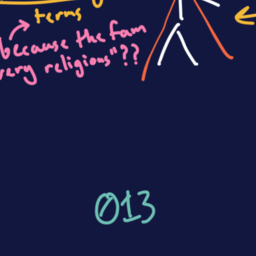 terms
because the fam
very religious"??
013